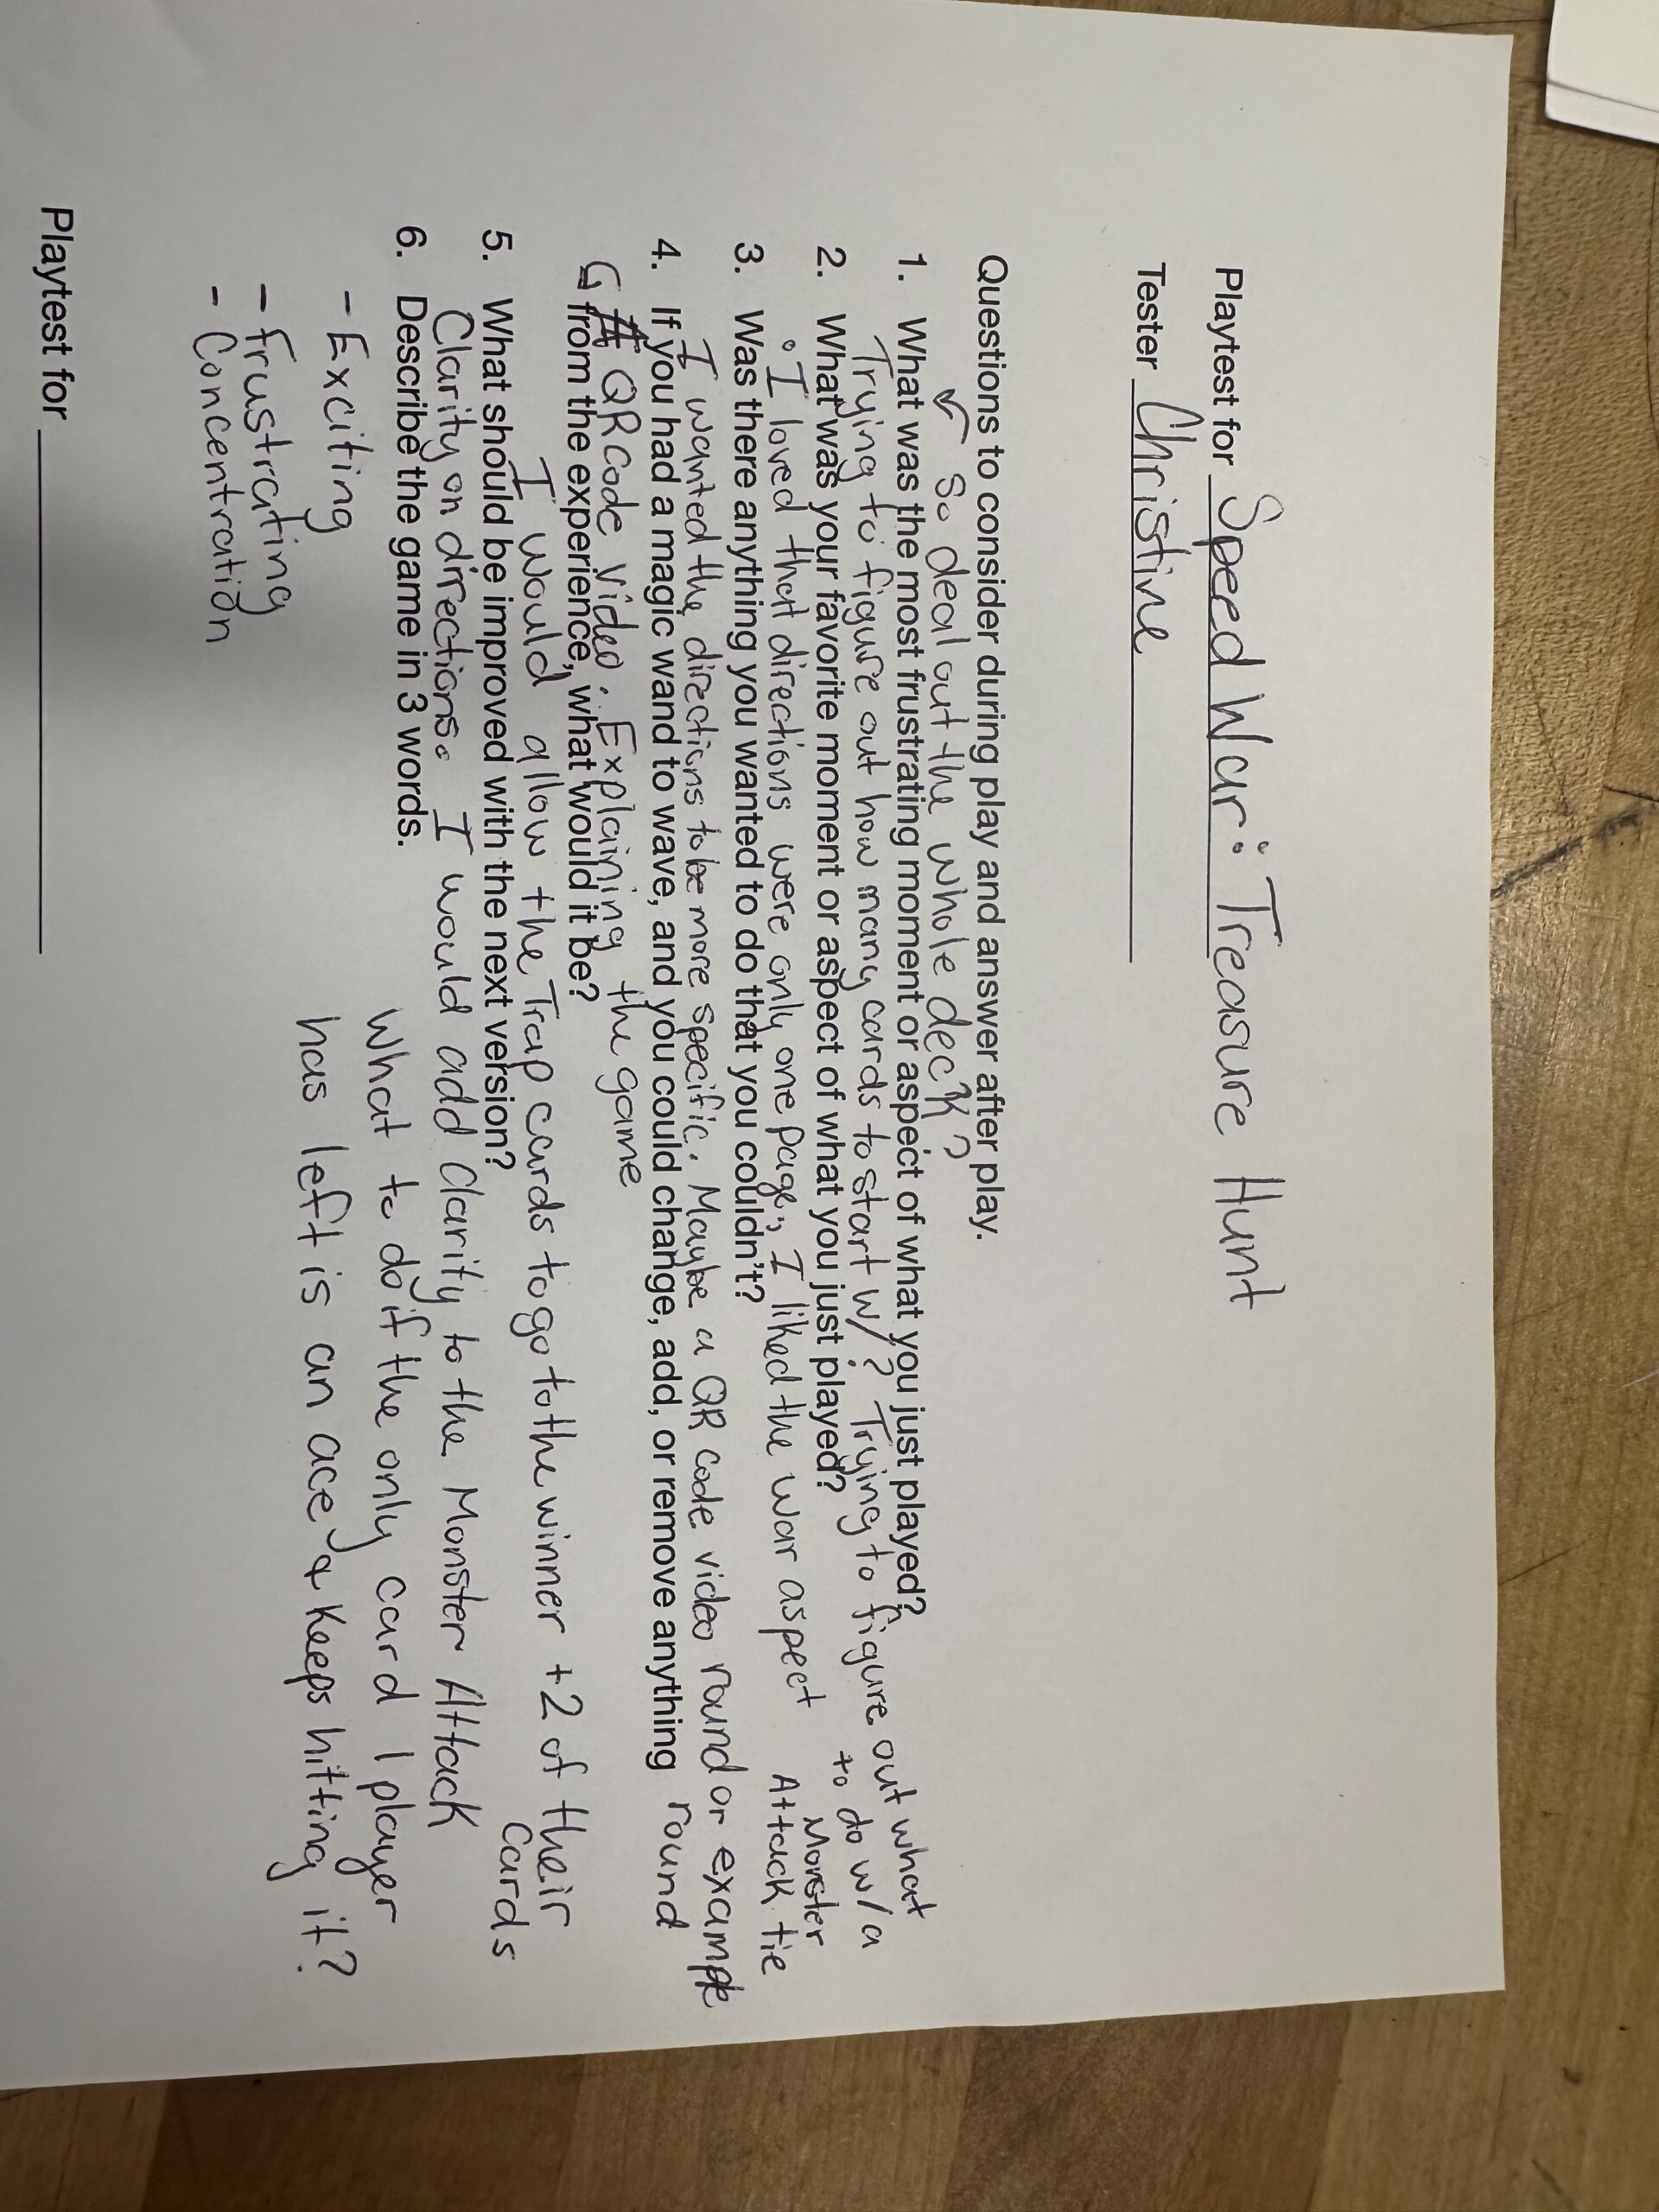 Playtest for Speed War: Treasure Hunt
Tester Christine
Questions to consider during play and answer after play.
So deal out the whole deck?
1. What was the most frustrating moment or aspect of what you just played?
Trying to figure out how many cards to start w/? Trying to figure out what
to do w/a
Monster
Attack tie
2. What was your favorite moment or aspect of what you just played?
• I loved that directions were only one page, I liked the war aspect
3. Was there anything you wanted to do that you couldn't?
I wanted the directions to be more specific. Maybe a QR code video round or example
round
4. If you had a magic wand to wave, and you could change, add, or remove anything
from the experience, what would it be?
QR code video: Explaining the game
I would allow the Trap cards to go to the winner +2 of their
cards
5. What should be improved with the next version?
Clarity on directions. I would add clarity to the Monster Attack
What to do if the only card 1 player
has left is an ace & keeps hitting it?
6. Describe the game in 3 words.
- Exciting
- frustrating
- Concentration
Playtest for